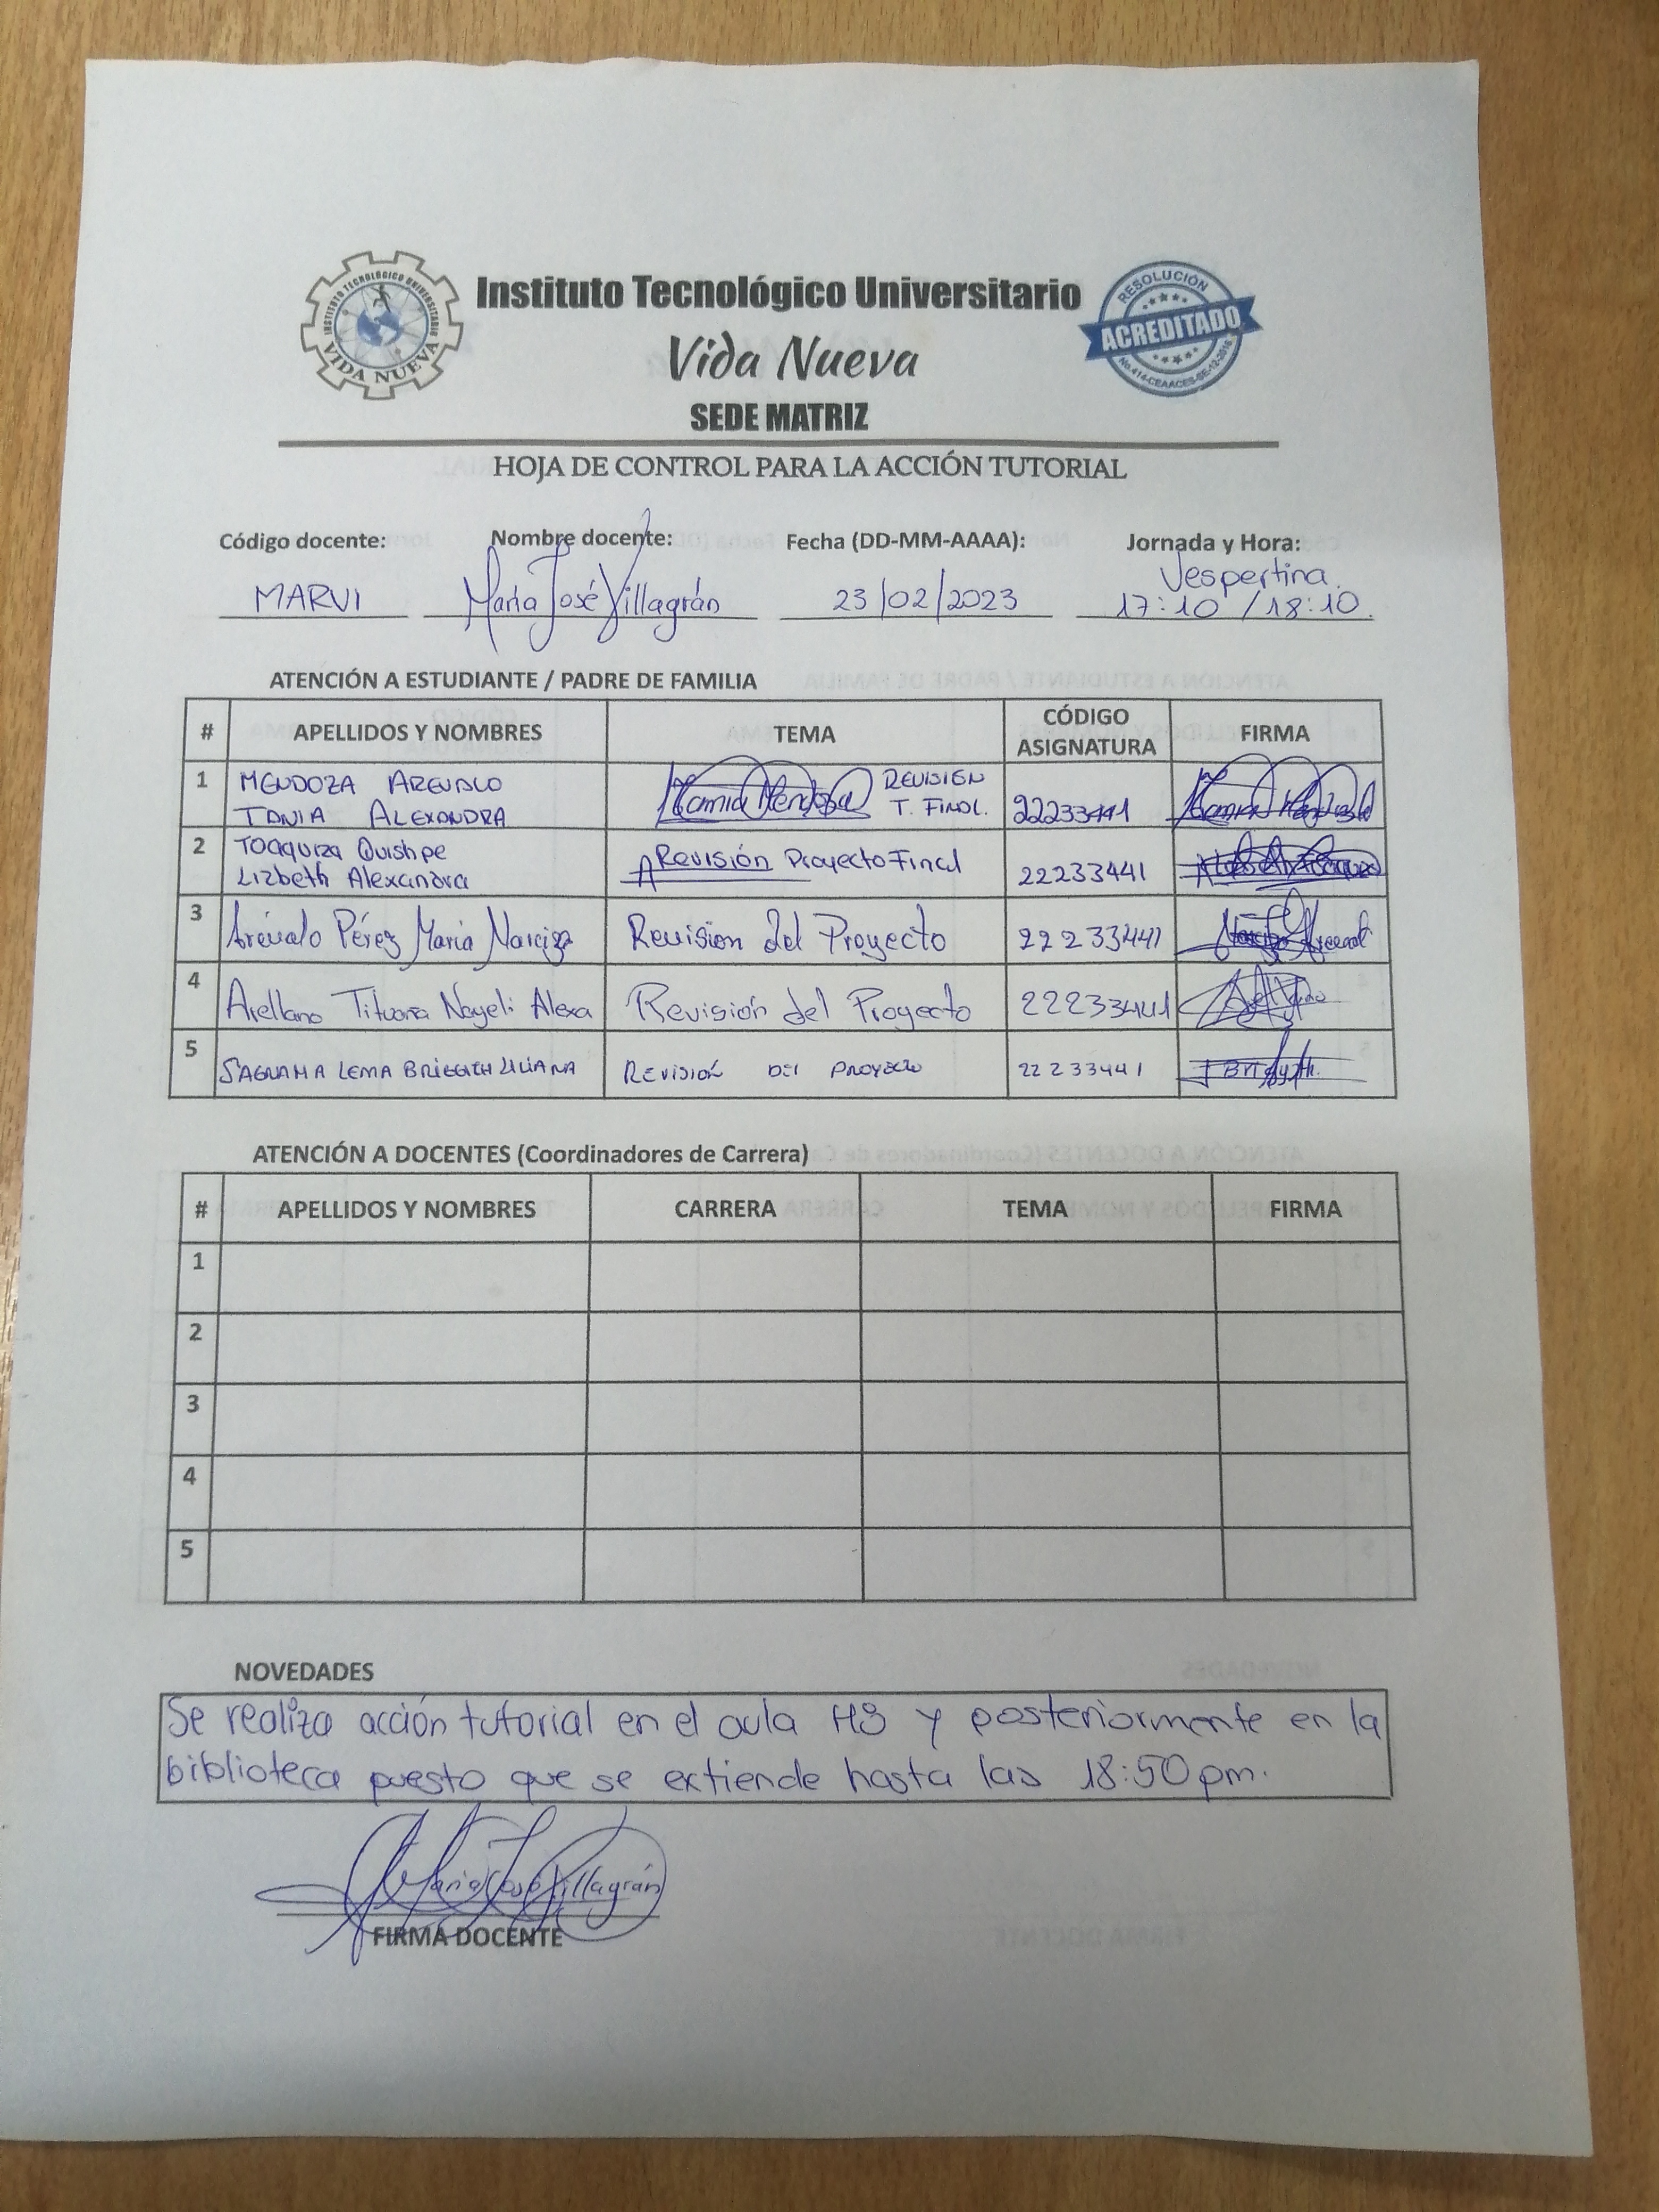 INSTITUTO TECNOLÓGICO UNIVERSITARIO
VIDA NUEVA
Instituto Tecnológico Universitario
Vida Nueva
SEDE MATRIZ
RESOLUCIÓN
ACREDITADO
HOJA DE CONTROL PARA LA ACCIÓN TUTORIAL
Código docente: Nombre docente: Fecha (DD-MM-AAAA): Jornada y Hora:
Vespertina
MARVI María José Villagrán 23/02/2023 17:10 / 18:10.
ATENCIÓN A ESTUDIANTE / PADRE DE FAMILIA
# APELLIDOS Y NOMBRES TEMA CÓDIGO ASIGNATURA FIRMA
1 MENDOZA AREVALO REVISIÓN
TANIA ALEXANDRA T. FINAL. 22233441
2 Toaquiza Quishpe Revisión Proyecto Final
Lizbeth Alexandra 22233441
3 Arévalo Pérez María Narciza Revision del Proyecto 22233441
4 Arellano Tituana Nayeli Alexa Revisión del Proyecto 22233441
5 SAGNAMA LEMA BRIGGITH LILIANA REVISIÓN DEL PROYECTO 22233441
ATENCIÓN A DOCENTES (Coordinadores de Carrera)
# APELLIDOS Y NOMBRES CARRERA TEMA FIRMA
1
2
3
4
5
NOVEDADES
Se realiza acción tutorial en el aula H3 y posteriormente en la
biblioteca puesto que se extiende hasta las 18:50 pm.
María José Villagrán
FIRMA DOCENTE